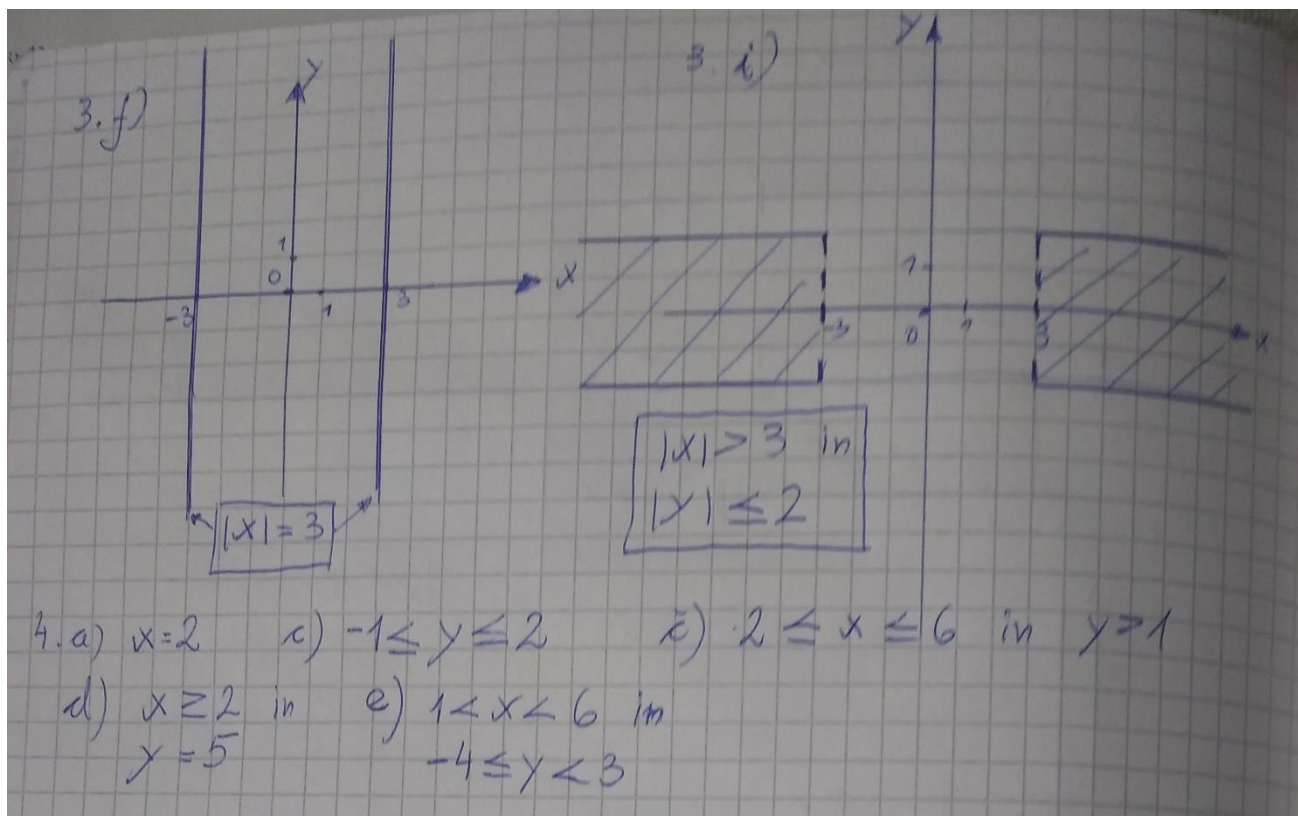 3. f)
y
1
0
x
-3
1
3
|x| = 3
3. i)
y
1
-3
0
1
3
x
|x| > 3 in
|y| ≤ 2
4. a) x = 2 c) -1 ≤ y ≤ 2 č) 2 ≤ x ≤ 6 in y > 1
d) x ≥ 2 in e) 1 < x < 6 in
y = 5 -4 ≤ y < 3